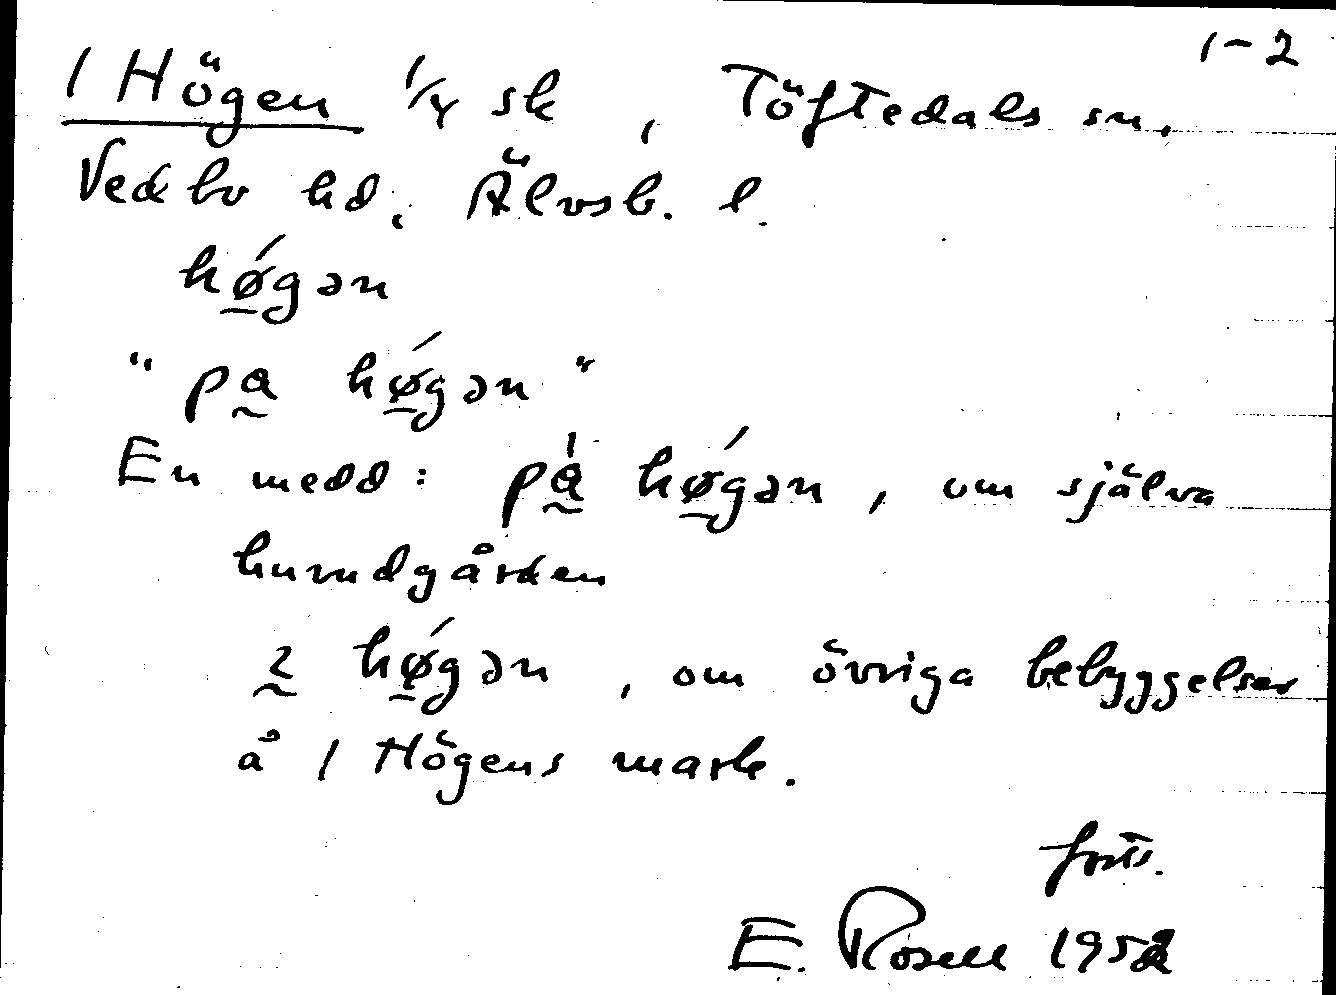 1-2
1 Högen 1/4 sk, Töftedals sn,
Vedbo hd. Älvsb. l.
hǿ̲gən
"pa̰ hǿ̲gən"
En medd: pa̰̍ hǿ̲gən, om själva
huvudgården
2̰ hǿ̲gən, om övriga bebyggelser
å 1 Högens mark.
forts.
E. Rosell 1952